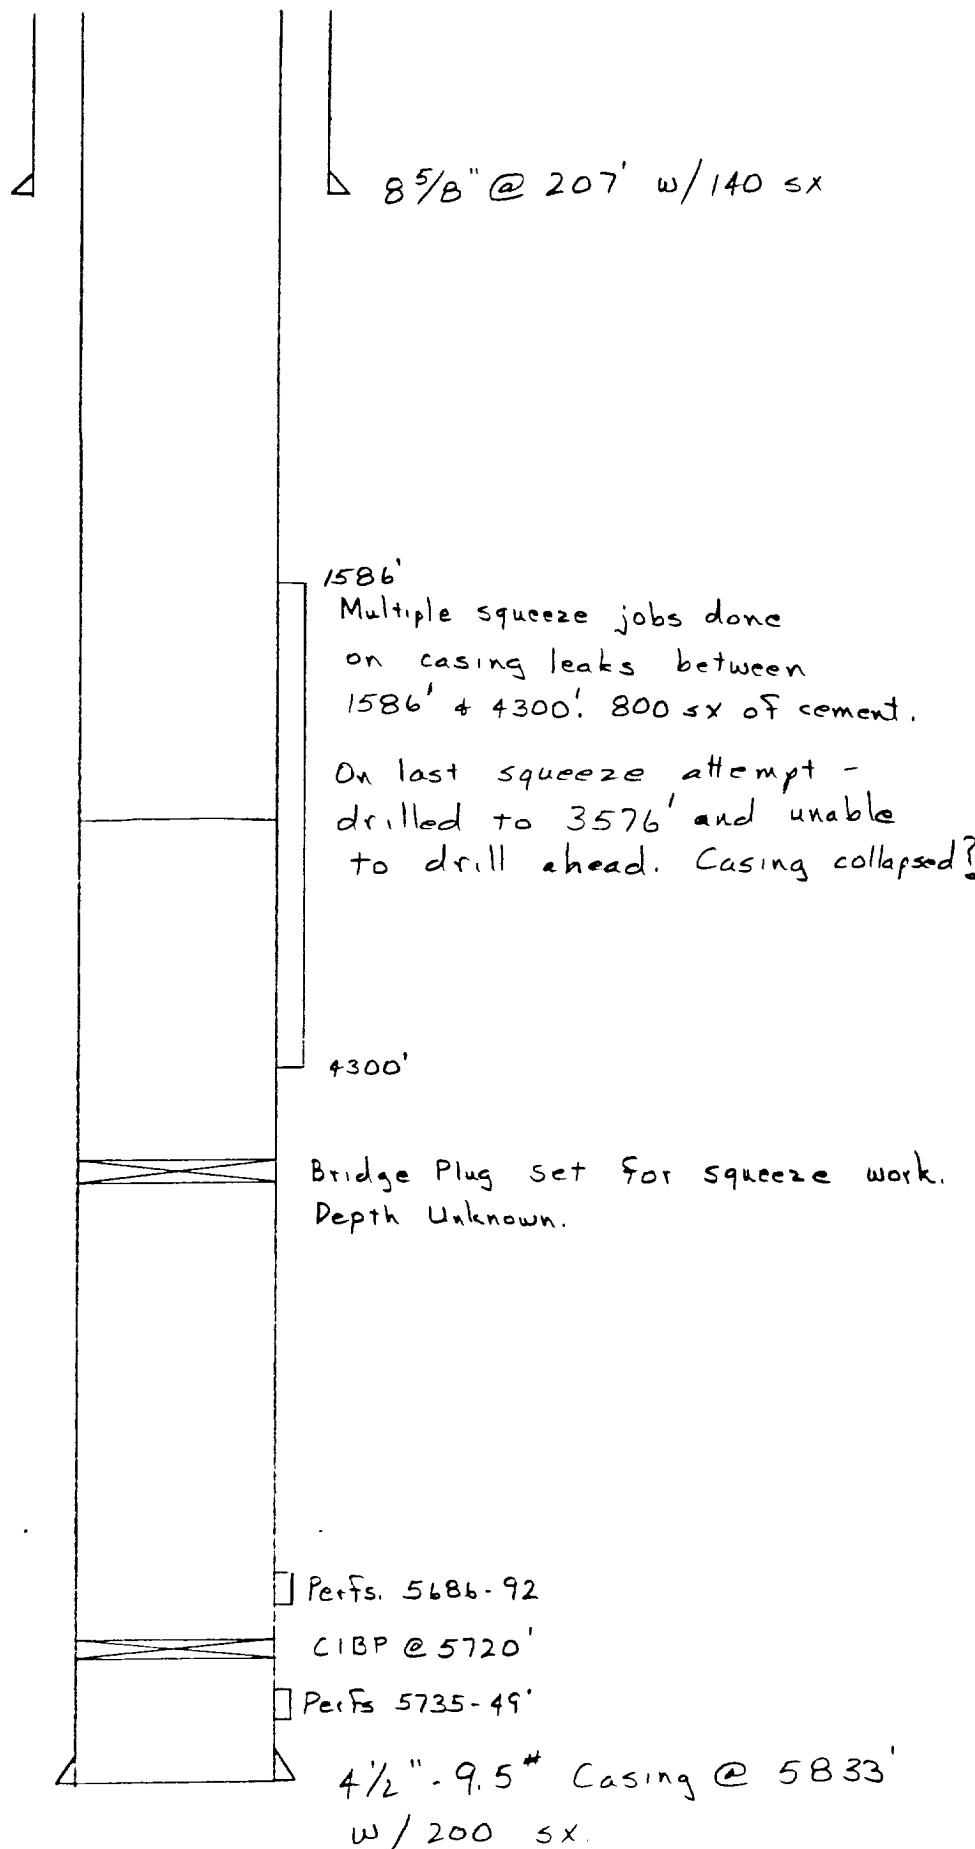 8 5/8" @ 207' w/140 sx
1586'
Multiple squeeze jobs done
on casing leaks between
1586' & 4300'. 800 sx of cement.
On last squeeze attempt -
drilled to 3576' and unable
to drill ahead. Casing collapsed?
4300'
Bridge Plug set for squeeze work.
Depth Unknown.
Perfs. 5686-92
CIBP @ 5720'
Perfs 5735-49'
4 1/2" - 9.5# Casing @ 5833'
w/ 200 sx.